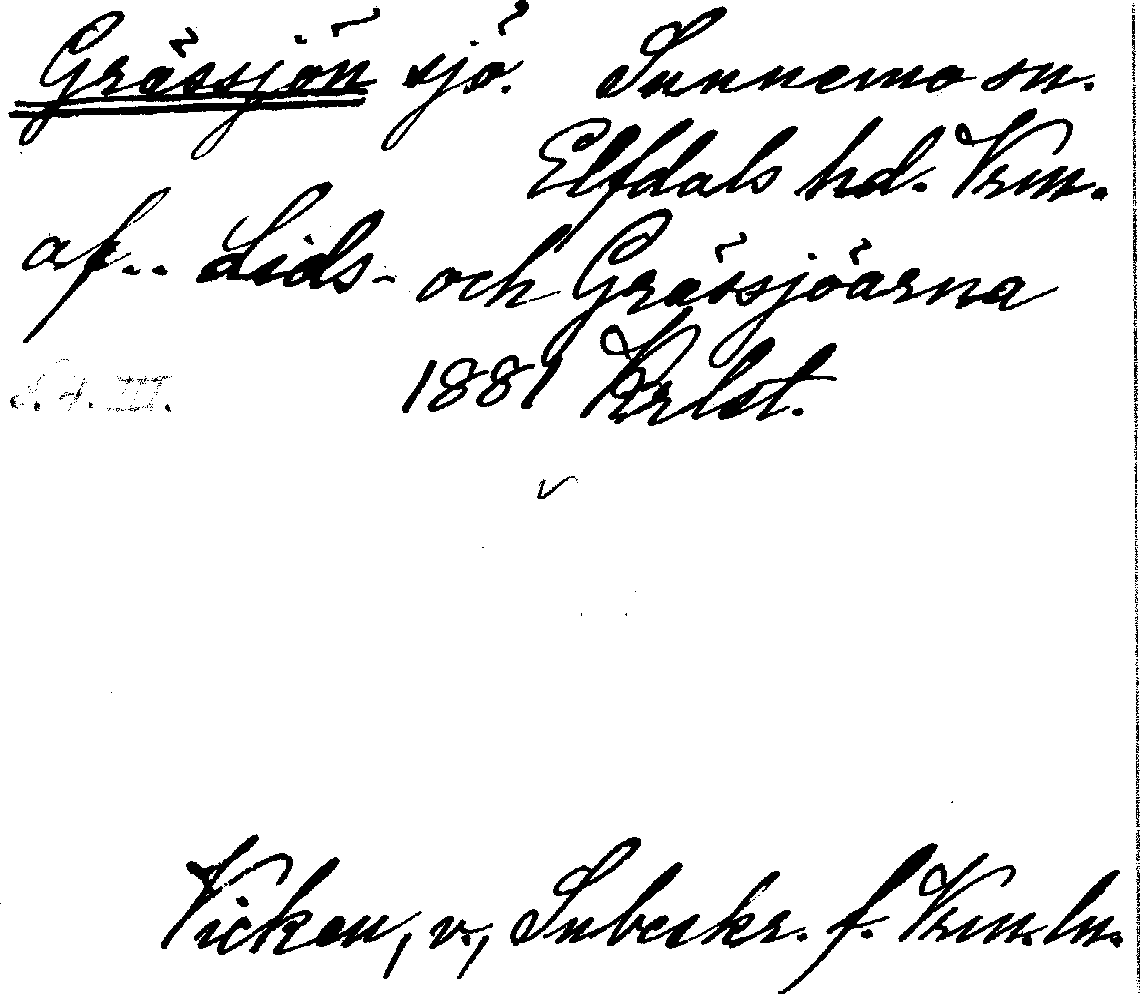 Grässjön sjö. Sunnemo sn.
Elfdals hd. Vrm.
af.. Lids- och Grässjöarna
1881 Krlst.
S. 4. III.
Vicken, v., Inbeskr. f. Vrm. ln.